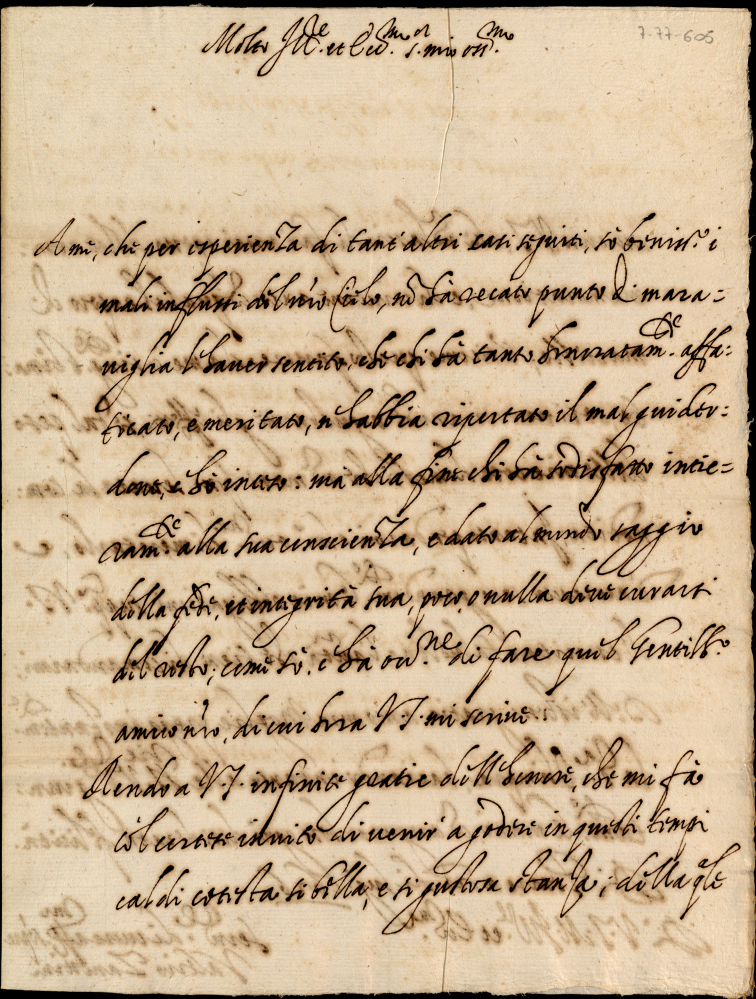 Molto Ill.re et Ecc.mo s.or mio oss.mo
7-77-605
A me, che per esperienza di tant'altri casi seguiti, sò beniss.o i
mali influssi del n'ro Cielo, nō hà recato punto di mara=
uiglia l'hauer sentito, che chi hà tanto honoratam.te affa=
ticato, e meritato, n'habbia riportato il mal guider=
done, c'hò inteso: mà alla fine chi hà sodisfatto intie=
ram.te alla sua conscienza, e dato al mondo saggio
della fede, et integrità sua, poco, o nulla deue curarsi
del resto; come sò, c'hà occ.ne di fare quel Gentilh.o
amico n'ro, di cui hora V.S. mi scriue.
Rendo a V.S. infinite gratie dell'honore, che mi fà
col cortese inuito di venir' a godere in questi tempi
caldi cotesta si bella, e si gustosa stanza; della q'le